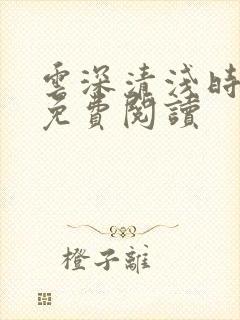 雲深清淺時
免費閱讀
橙子離